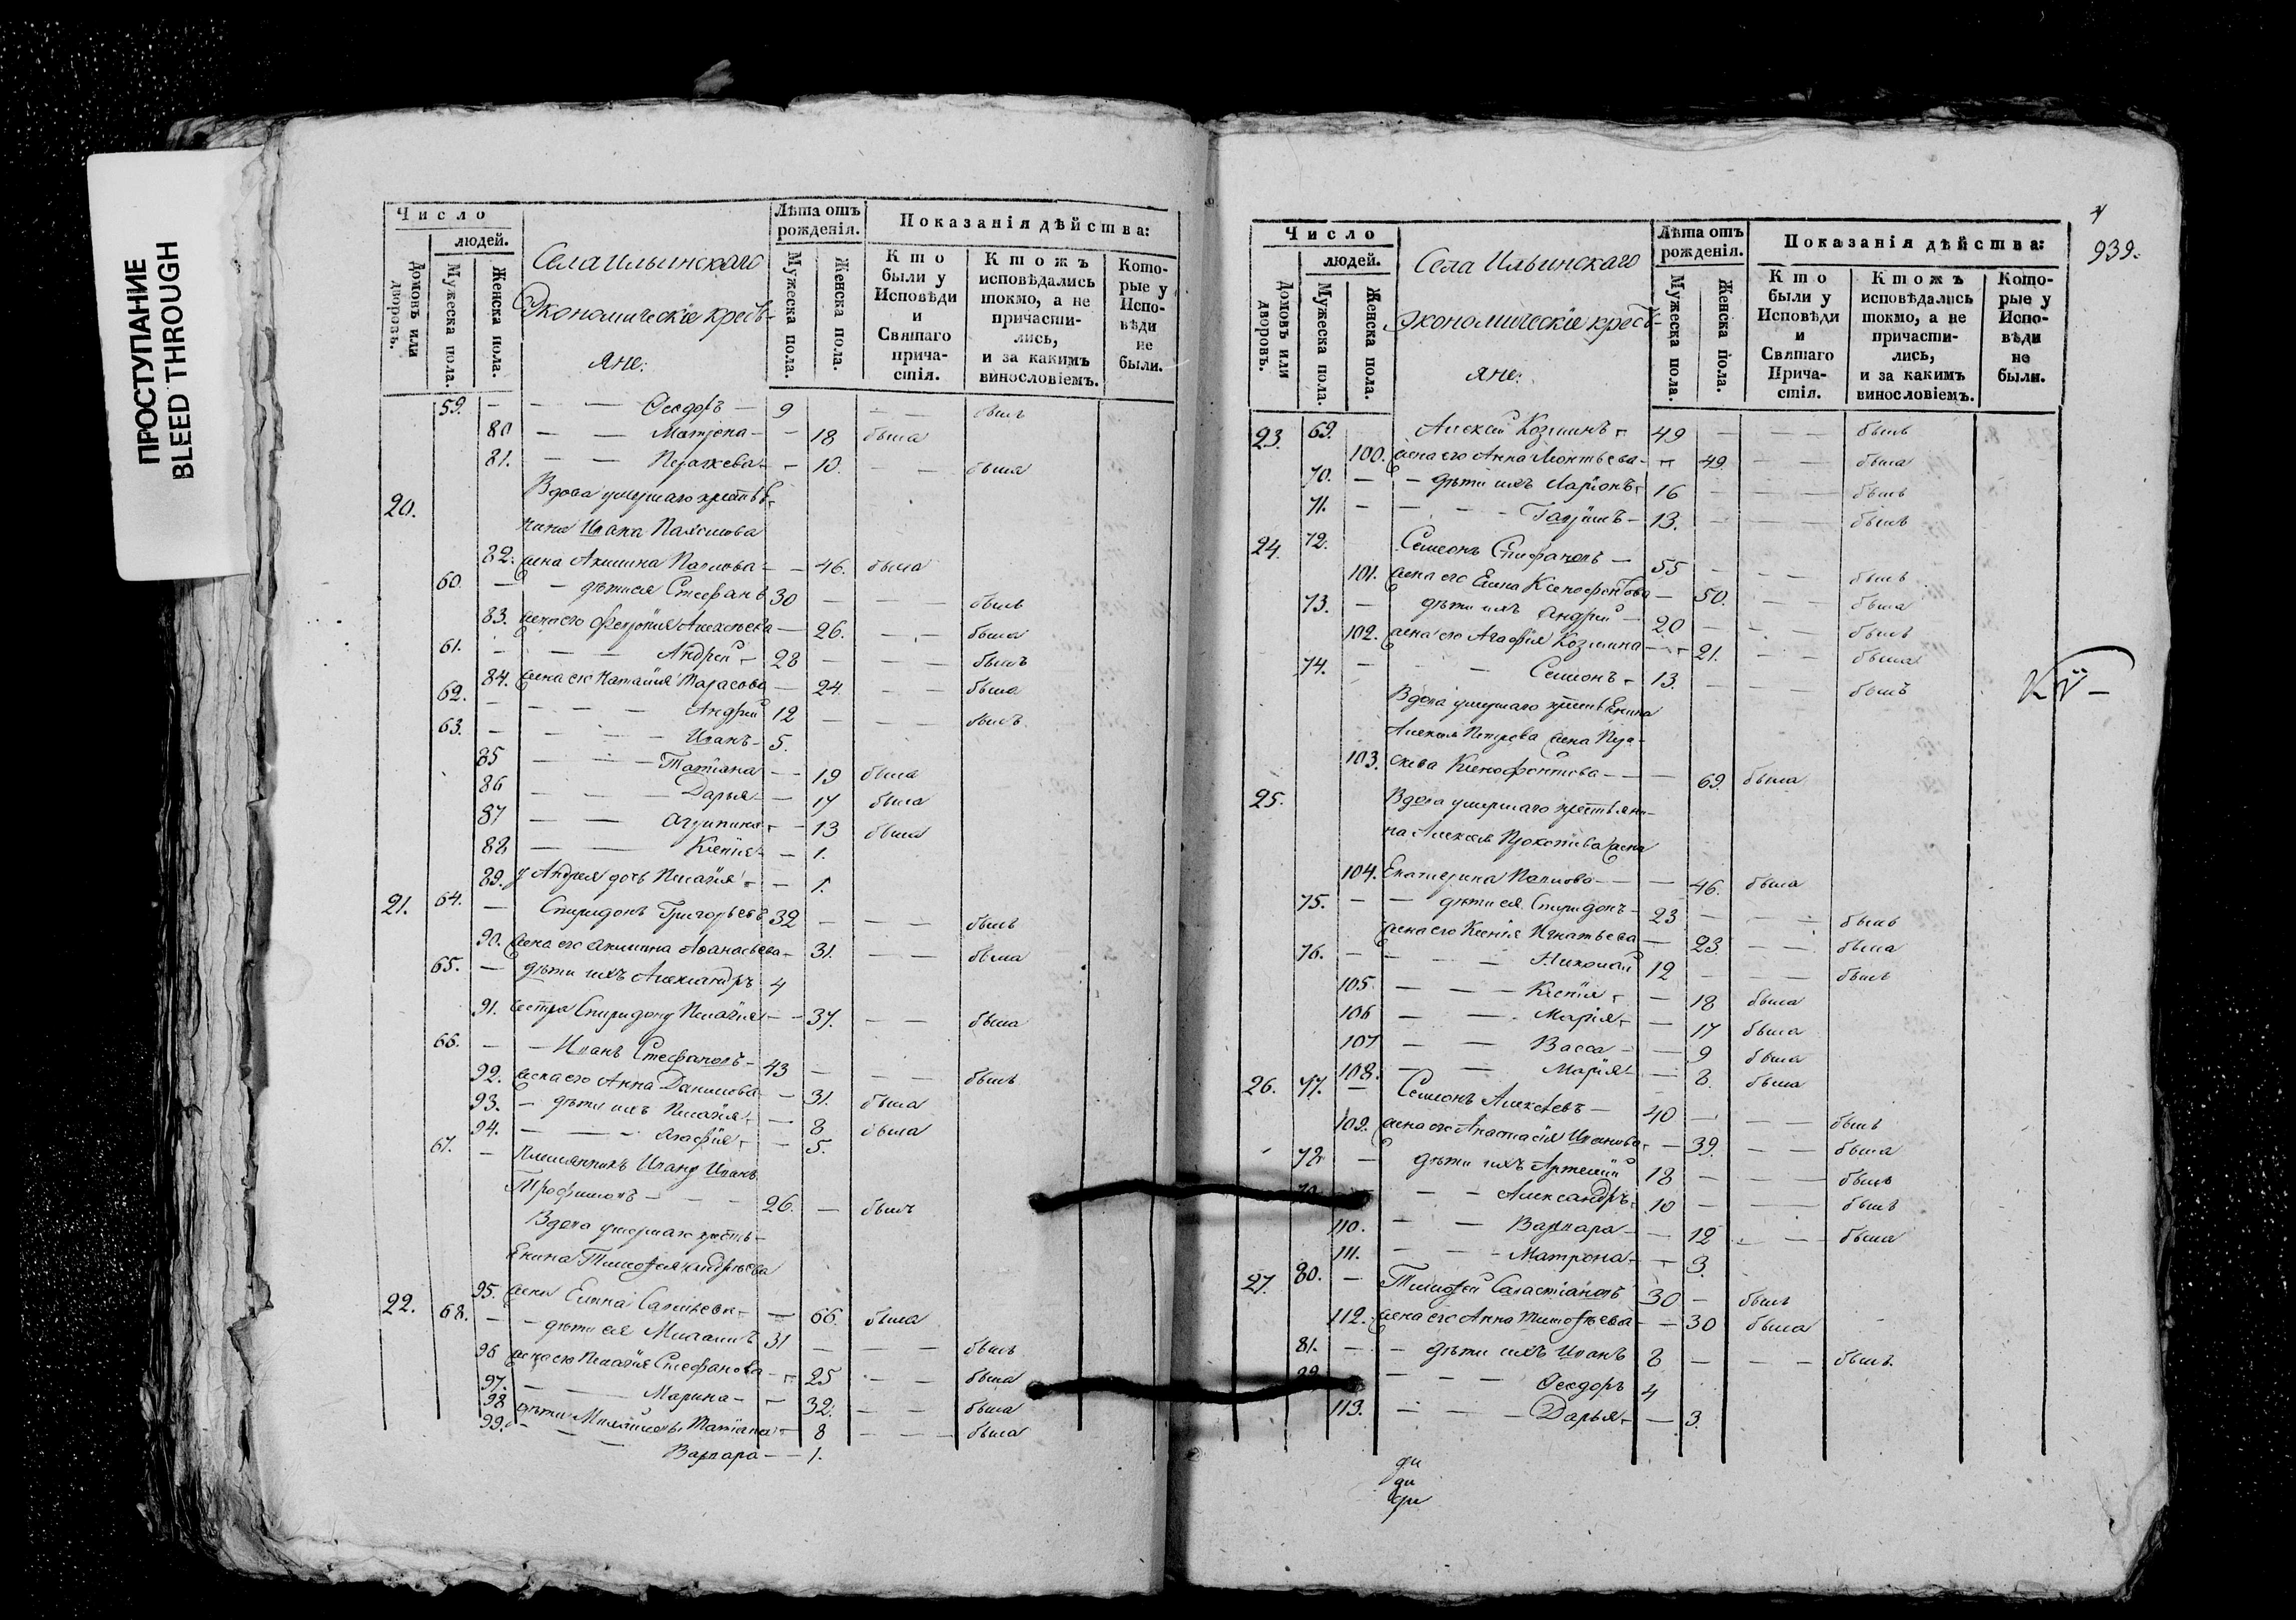 ПРОСТУПАНИЕ
BLEED THROUGH
Число
людей.
Домовъ или дворовъ.
Мужеска пола.
Женска пола.
Села Ильинскаго
Экономическіе кресть-
яне:
Лѣта отъ рожденія.
Мужеска пола.
Женска пола.
Показанія дѣйства:
Кто были у Исповѣди и Святаго причастія.
Ктожъ исповѣдались токмо, а не причастились, и за какимъ винословіемъ.
Которые у Исповѣди не были.
59. — — — Ѳеодоръ — 9 — — былъ
80 — — Матрена — — 18 была
81. — — — — 10. — — была
20. Вдова умершаго крестья-
нина Ивана
82. жена Акилина Павлова — — 46. была
60 — — дѣти ея Стефанъ 30 — — — былъ
83. жена его Февронія Алексѣева — 26. — — была
61. — — — — Андрей — 28 — — — былъ
84. жена ею Наталія Тарасова — 24. — — была
62. — — — — Андрей 12 — — — былъ
63. — — — — Иванъ — 5.
85 — — — Татіана — — 19 была
86 — — — Дарья — — 17 была
87 — — Агрипина — — 13 была
88 — — Ксенія — — 1.
89. у Андрея дочь Пелагія — — 1.
21. 64. — Спиридонъ Григорьевъ 32 — — — былъ
90. жена его Акилина Аѳанасьева — 31. — — была
65. — дѣти ихъ Александръ 4
91. сестра Спиридону Пелагія — — 37. — — была
66. — — Иванъ Стефановъ — 43 — — — былъ
92. жена его Анна Данилова — — 31. была
93. — дѣти ихъ Пелагія — — 8 была
94. — — — Агафія — — 5.
67. — Племянникъ Ивану Иванъ
Трофимовъ — — — 26. — былъ
Вдова умершаго кресть-
янина Тимофея Андрѣева
95. жена Елена — — 66. была
22. 68. — — дѣти ея 31 — — — былъ
96 жена ею Пелагія Стефанова — — 25 — — была
97. — — Марина — — 32. — — была
98 дѣти Татіана — 8 — — — была
99. — — — Варвара — — 1.
4
939.
Число
людей.
Домовъ или дворовъ.
Мужеска пола.
Женска пола.
Села Ильинскаго
Экономическіе кресть-
яне:
Лѣта отъ рожденія.
Мужеска пола.
Женска пола.
Показанія дѣйства:
Кто были у Исповѣди и Святаго Причастія.
Ктожъ исповѣдались токмо, а не причастились, и за какимъ винословіемъ.
Которые у Исповѣди не были.
23. 69. Алексѣй Козминъ — 49 — — — былъ
100. жена его Анна Леонтьева — — 49. — — была
70. — — дѣти ихъ Ларіонъ — 16 — — — былъ
71. — — — — 13. — — — былъ
24. 72. Симеонъ Стефановъ — 55 — — — былъ
101. жена его Елена Ксенофонтова — 50. — — была
73. — дѣти ихъ Андрей — 20 — — — былъ
102. жена его Агафія Козмина — — 21. — — была
74. — — — Симеонъ — 13. — — — былъ
Вдова умершаго крестьянина
Алексѣя Петрова жена Пара-
103. скева Ксенофонтова — — — 69. была
25. Вдова умершаго крестьяни-
на Алексѣя Прокопіева жена
104. Екатерина Павлова — — — 46. была
75. — — дѣти ея Спиридонъ — 23 — — — былъ
жена его Ксенія Игнатьева — 23. — — была
76. — — — — Николай 12 — — — былъ
105. — — — Ксенія — — 18 была
106 — — Марія — — 17 была
107 — — Васса — — 9 была
108. — — Марія — — 8. была
26. 77. — Симеонъ Алексѣевъ — 40 — — — былъ
109. жена его Анастасія Иванова — — 39. — — была
78 — дѣти ихъ Артемій 18 — — — былъ
— — Александръ — 10 — — былъ
110. — — Варвара — — 12 — — была
111. — — — Матрона — — 3.
27. 80. — Тимофей Савастіановъ 30 — былъ
112. жена его Анна Тимофѣева — — 30 была
81. — — дѣти ихъ Иванъ 8 — — — былъ
— — — Ѳеодоръ 4
113. — — — Дарья — — 3.